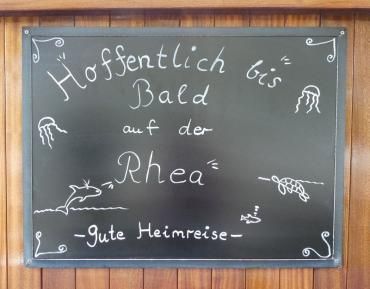 Hoffentlich bis
Bald
auf der
Rhea
-gute Heimreise-